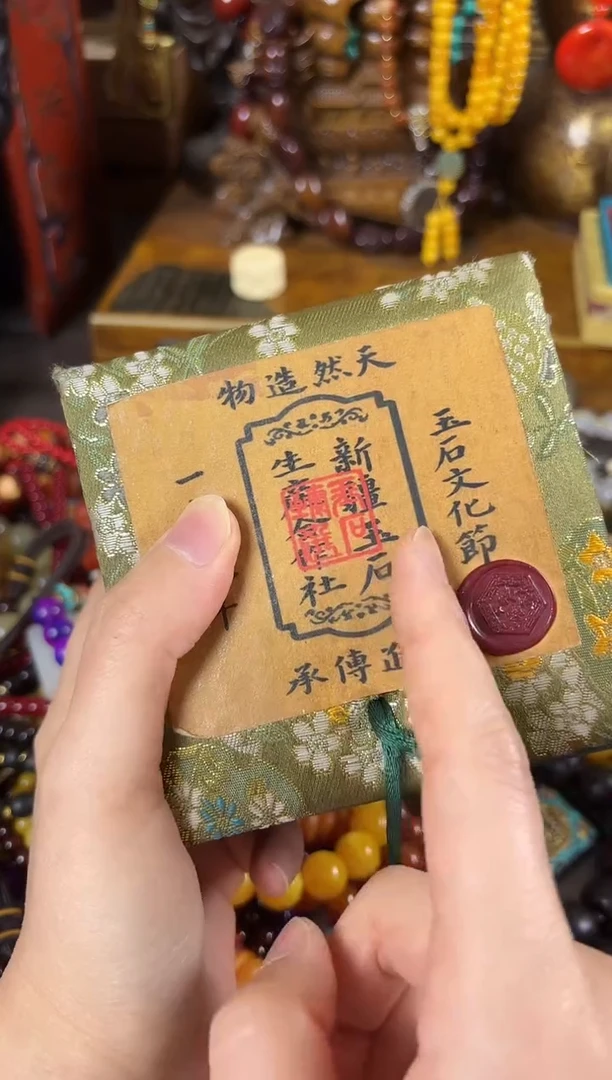 天然造物
玉石文化節
新疆玉石
生產合作社
傳承
一